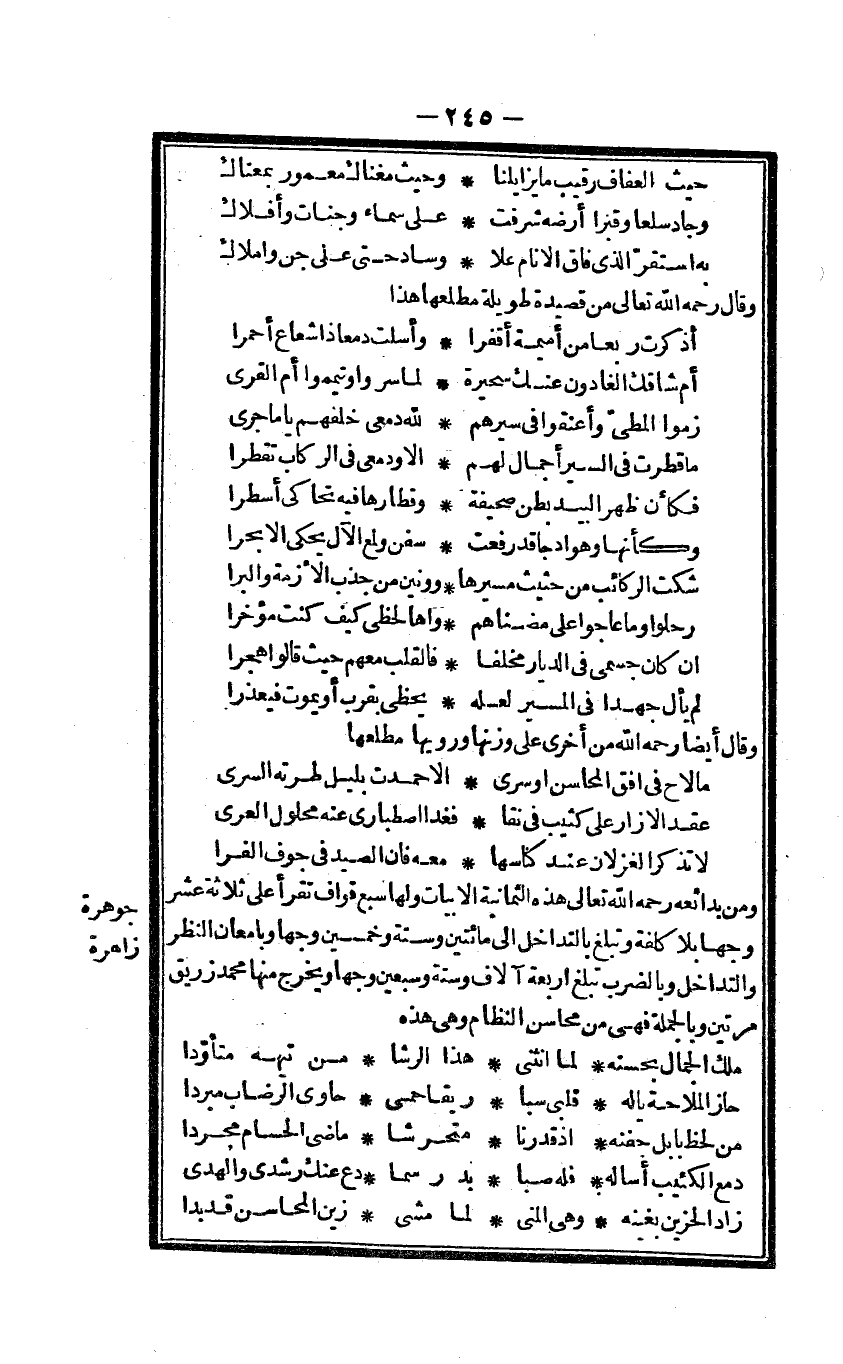 — ٢٤٥ —
حيث العفاف رقيب ما يزايلنا * وحيث مغناك معمور بمعناك
وجاد سلعا وقبرا أرضه شرفت * على سماء وجنات وأفلاك
به استقرّ الذى فاق الانام علا * وساد حتى على جن واملاك
وقال رحمه الله تعالى من قصيدة طويلة مطلعها هذا
أذكرت ربعا من أميمة أقفرا * وأسلت دمعا ذا شعاع أحمرا
أم شاقك الغادون عنك سحيرة * لما سروا وتيمموا أم القرى
زموا المطىّ وأعنقوا فى سيرهم * لله دمعى خلفهم يا ما جرى
ما قطرت فى السير أجمال لهم * الا ودمعى فى الركاب تقطرا
فكأن ظهر البيد بطن صحيفة * وقطارها فيه تحاكى أسطرا
وكأنها وهوادجا قد رفعت * سفن ولمع الآل يحكى الابحرا
شكت الركائب من حثيث مسيرها * وونين من جذب الأزمة والبرا
رحلوا وما عاجوا على مضناهم * واها لحظى كيف كنت مؤخرا
ان كان جسمى فى الديار مخلفا * فالقلب معهم حيث قالوا هجرا
لم يأل جهدا فى المسير لعله * يحظى بقرب أو يموت فيعذرا
وقال أيضا رحمه الله من أخرى على وزنها ورويها مطلعها
ما لاح فى افق المحاسن او سرى * الا حمدت بليل طرته السرى
عقد الازار على كثيب فى نقا * فغدا اصطبارى عنه محلول العرى
لا تذكر الغزلان عند كناسها * معه فان الصيد فى جوف الفرا
ومن بدائعه رحمه الله تعالى هذه الثمانية الابيات ولها سبع قواف تقرأ على ثلاثة عشر
وجها بلا كلفة وتبلغ بالتداخل الى مائتين وستة وخمسين وجها وبامعان النظر
جوهرة
زاهرة
والتداخل وبالضرب تبلغ اربعة آلاف وستة وسبعين وجها ويخرج منها محمد زريق
مرتين وبالجملة فهى من محاسن النظام وهى هذه
ملك الجمال بحسنه * لما انثنى * هذا الرشا * من تيهه متأوّدا
حاز الملاحة ياله * قلبى سبا * ريقا حمى * حاوى الرضاب مبردا
من لحظ بابل جفنه * اذ قدرنا * متحرشا * ماضى الحسام مجردا
دمع الكئيب أساله * فله صبا * بدر سما * دع عنك رشدى والهدى
زاد الحزين بغينه * وهى المنى * لما مشى * زين المحاسن قد بدا